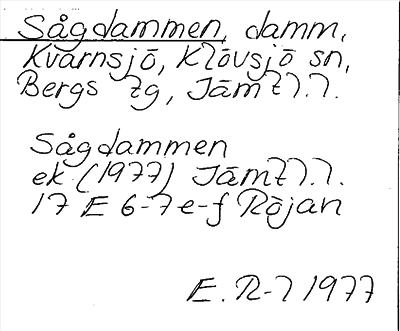 Sågdammen, damm,
Kvarnsjö, Klövsjö sn,
Bergs tg, Jämtl.l.
Sågdammen
ek (1977) Jämtl.l.
17 E 6-7 e-f Röjan
E. R-l 1977